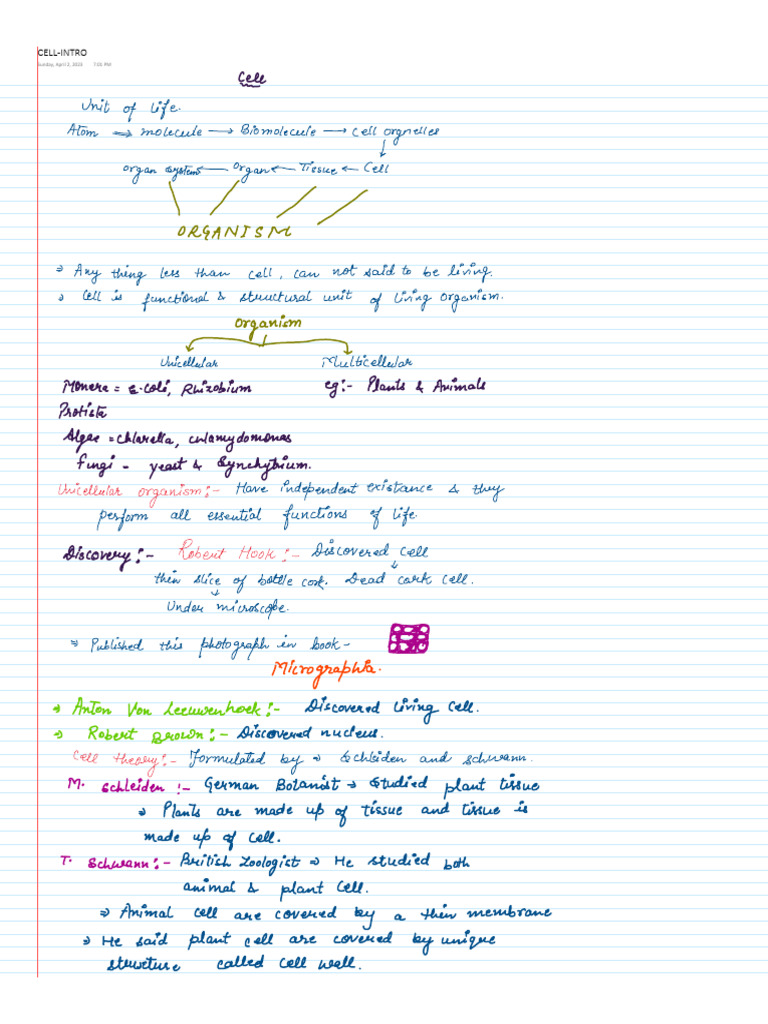 CELL-INTRO
Sunday, April 2, 2023 7:01 PM
Cell
Unit of life.
Atom ⇒ molecule → Biomolecule → Cell orgnelles
organ system ← Organ ← Tissue ← Cell
ORGANISM
⇒ Any thing less than cell, can not said to be living.
⇒ Cell is functional & structural unit of living organism.
Organism
Unicellular Multicellular
Monera = E.coli, Rhizobium eg:- Plants & Animals
Protista
Algae = chlarella, chlamydomonas
fungi - yeast & Synchytrium.
Unicellular organism:- Have independent existance & they
perform all essential functions of life.
Discovery:- Robert Hook:- Discovered cell
thin slice of bottle cork. Dead cark cell.
Under microscope.
⇒ Published this photograph in book -
Micrographia.
⇒ Anton Von Leeuwenhoek:- Discovered living cell.
⇒ Robert Brown:- Discovered nucleus.
Cell theory:- Formulated by ⇒ Schleiden and schwann.
M. schleiden :- German Botanist → Studied plant tissue
⇒ Plants are made up of tissue and tissue is
made up of cell.
T. Schwann:- British Zoologist ⇒ He studied both
animal & plant cell.
⇒ Animal cell are covered by a thin membrane
⇒ He said plant cell are covered by unique
structure called cell wall.